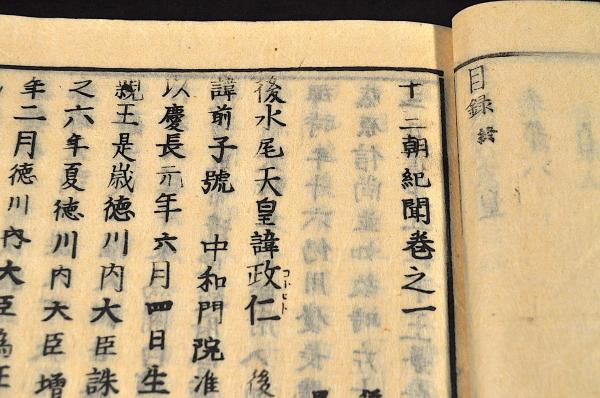 目録 終
十二朝紀聞巻之一
後水尾天皇諱政仁
コトヒト
後
諱前子號 中和門院准
以慶長元年六月四日生
親王是歳徳川内大臣誅
之六年夏徳川内大臣增
年二月徳川内大臣為征